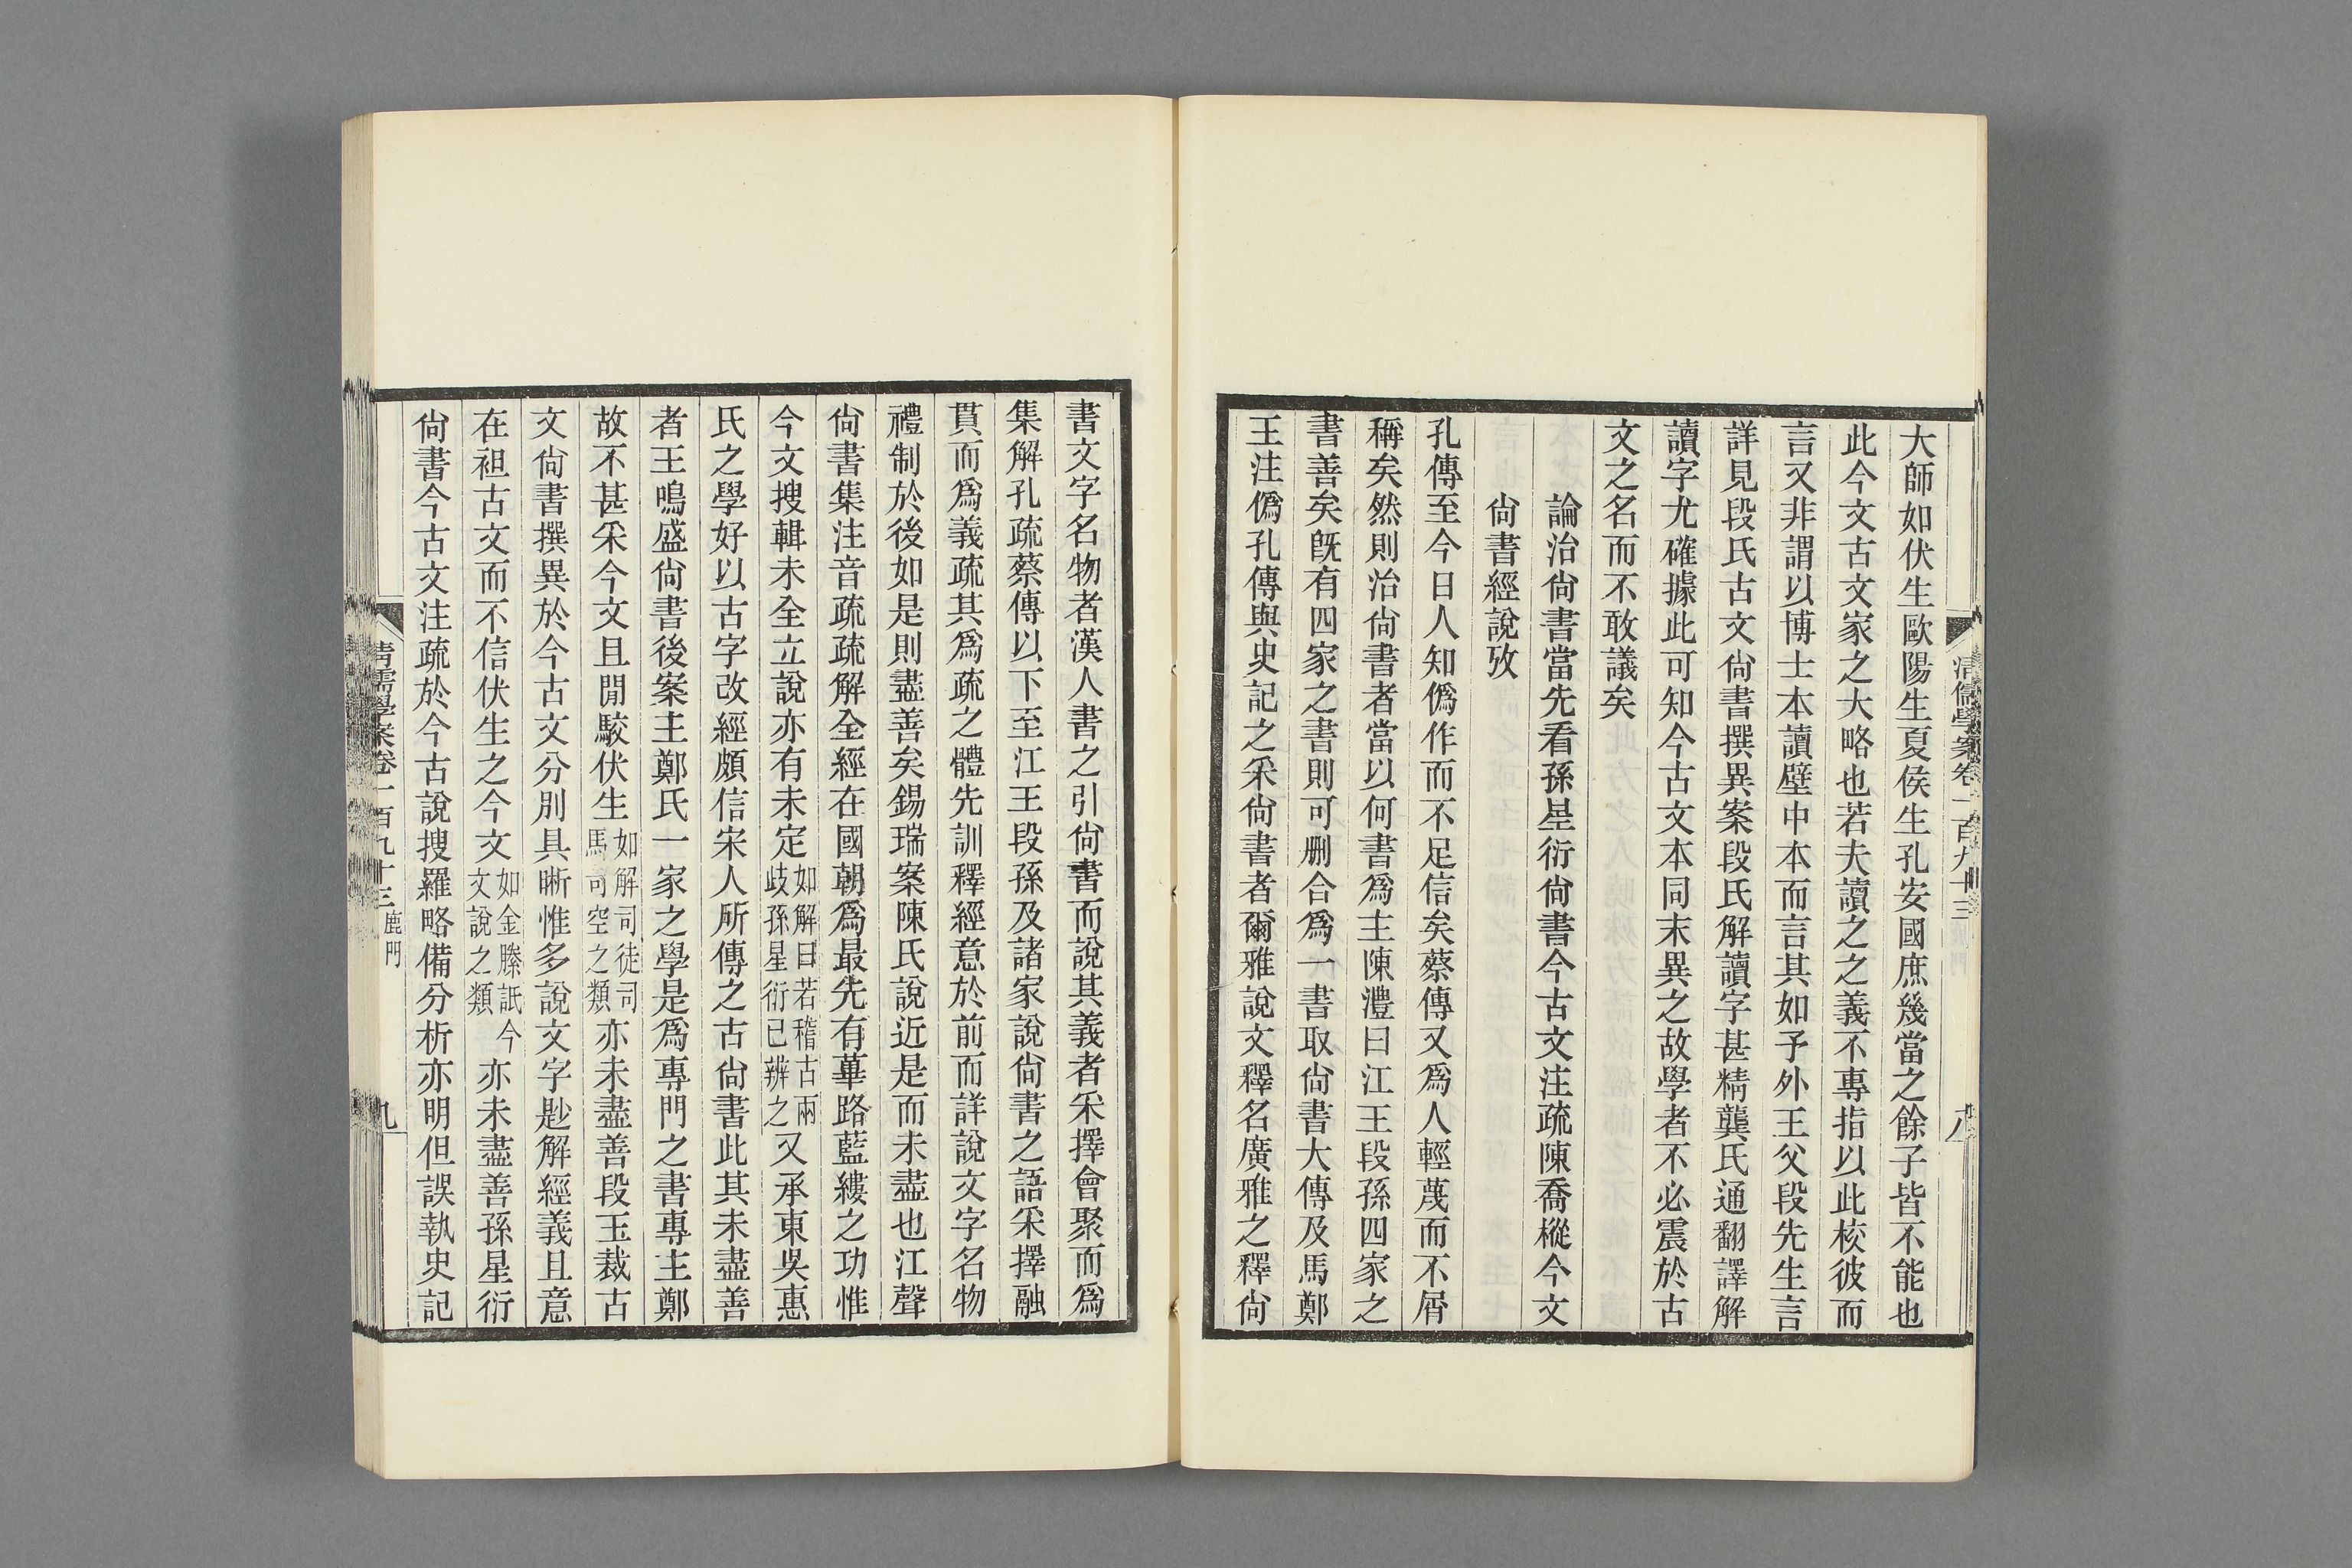 清儒學案卷一百九十三 八
大師如伏生歐陽生夏侯生孔安國庶幾當之餘子皆不能也
此今文古文家之大略也若夫讀之之義不專指以此校彼而
言又非謂以博士本讀壁中本而言其如予外王父段先生言
詳見段氏古文尙書撰異案段氏解讀字甚精龔氏通翻譯解
讀字尤確據此可知今古文本同末異之故學者不必震於古
文之名而不敢議矣
論治尙書當先看孫星衍尙書今古文注疏陳喬樅今文
尙書經說攷
孔傳至今日人知僞作而不足信矣蔡傳又爲人輕蔑而不屑
稱矣然則治尙書者當以何書爲主陳澧曰江王段孫四家之
書善矣旣有四家之書則可删合爲一書取尙書大傳及馬鄭
王注僞孔傳與史記之采尙書者爾雅說文釋名廣雅之釋尙
書文字名物者漢人書之引尙書而說其義者采擇會聚而爲
集解孔疏蔡傳以下至江王段孫及諸家說尙書之語采擇融
貫而爲義疏其爲疏之體先訓釋經意於前而詳說文字名物
禮制於後如是則盡善矣錫瑞案陳氏說近是而未盡也江聲
尙書集注音疏疏解全經在國朝爲最先有蓽路藍縷之功惟
今文搜輯未全立說亦有未定如解曰若稽古兩歧孫星衍已辨之又承東吳惠
氏之學好以古字改經頗信宋人所傳之古尙書此其未盡善
者王鳴盛尙書後案主鄭氏一家之學是爲專門之書專主鄭
故不甚采今文且閒駁伏生如解司徒司馬司空之類亦未盡善段玉裁古
文尙書撰異於今古文分別具晰惟多說文字尟解經義且意
在袒古文而不信伏生之今文如金縢詆今文說之類亦未盡善孫星衍
尙書今古文注疏於今古說搜羅略備分析亦明但誤執史記
清儒學案卷一百九十三 鹿門 九